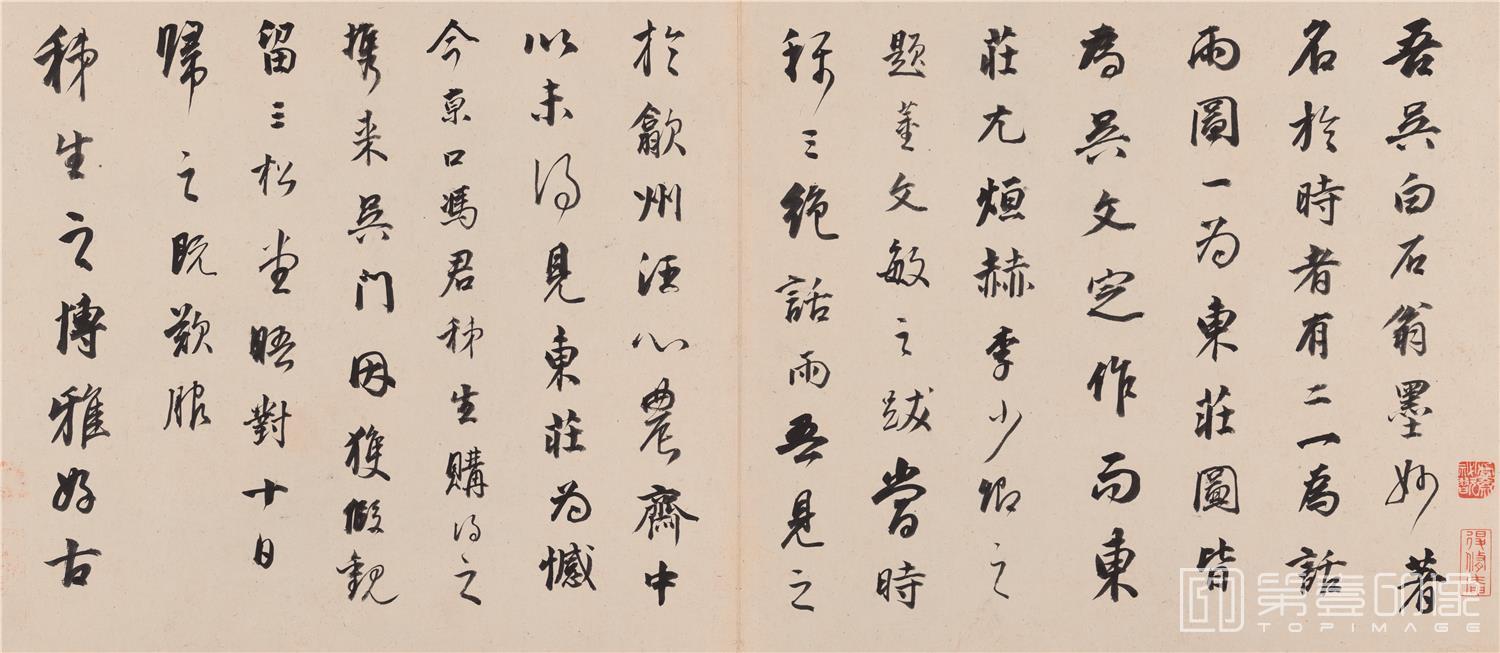 吾吳白石翁墨妙著
名於時者有二一為話
雨圖一为東莊圖皆
為吳文定作而東
莊尤烜赫李少卿之
題董文敏之跋當時
稱三絕話雨吾見之
於歙州汪心農齋中
以未得見東莊为憾
今京口馮君秭生購得之
攜来吳門因獲假觀
留三松堂晤對十日
歸之既歎服
秭生之博雅好古
得修
第壹映象
TOPIMAGE